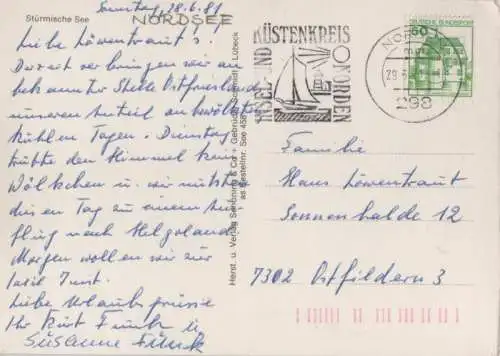 Stürmische See
NORDSEE
Sonntag, 28.6.81
Liebe Löwentraut's!
Derzeit verbringen wir an
bekannter Stelle Ostfriesland
unseren Anteil an bewölkten
kühlen Tagen. Dienstag
trübte den Himmel kein
Wölkchen u. wir nutzten
diesen Tag zu einem Aus-
flug nach Helgoland.
Morgen wollen wir zur
Insel Juist.
Liebe Urlaubsgrüsse
Ihr Kurt Funck u.
Susanne Funck
Herst. u. Verlag Schöning & Co + Gebrüder Schmidt, Lübeck
Bestellnr. See 458
INSEL- UND KÜSTENKREIS NORDEN
NORDEN
298
60
DEUTSCHE BUNDESPOST
Familie
Hans Löwentraut
Sonnenhalde 12
7302 Ostfildern 3